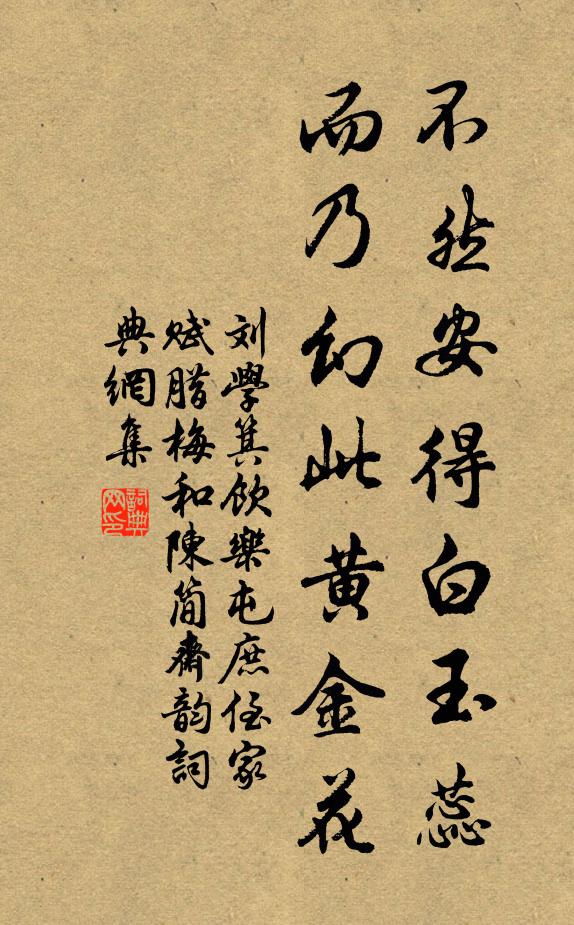 不然安得白玉蕊
而乃幻此黄金花
刘學箕飲樂屯庶侄家
赋腊梅和陳簡齋韵詞
典網集
詞典
网印